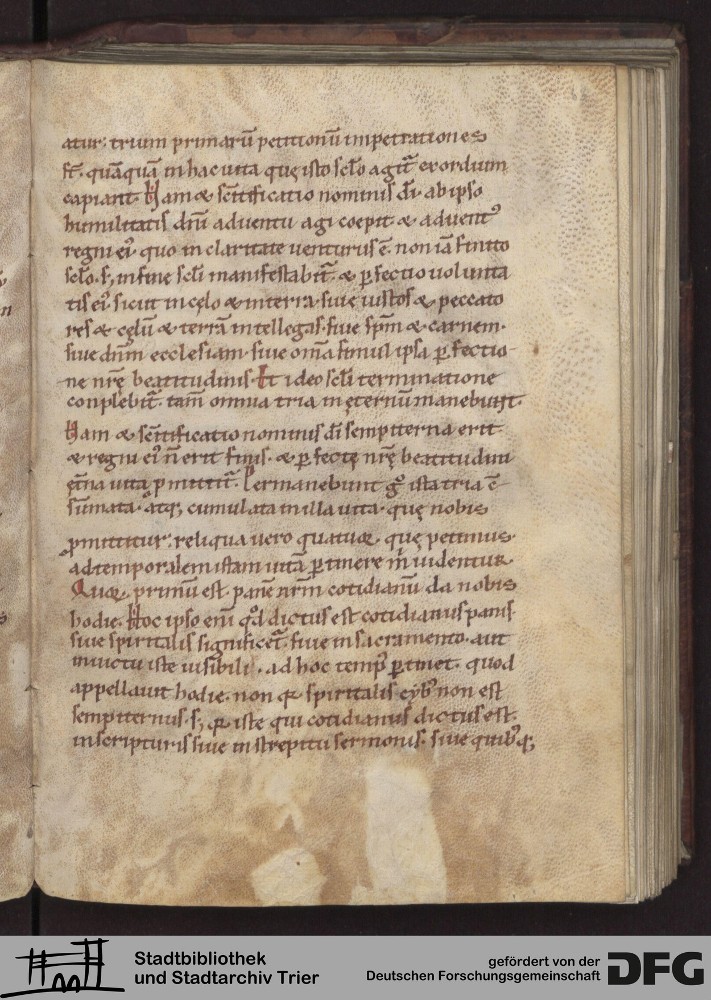 atur: trium primarū petitionū impetrationes
st̄. quāquā in hac uita que̜ isto sc̄lo agit̄ exordium
capiant. Nam & sc̄ificatio nominis dī. ab ipso
humilitatis dn̄i aduentu agi coepit & aduent᾽
regni ei᾽ quo in claritate uenturus ē. non iā finito
sc̄lo. s; in fine sc̄li manifestabit̄. & ꝑfectio uolunta
tis ei᾽ sicut in ce̜lo & in terra. siue iustos & peccato
res & ce̜lū & terrā intellegas. siue sp̄m & carnem.
siue dn̄m ecclesiam. siue om̄a simul ipsa ꝑfectio
ne nr̄e̜ beatitudinis. Et ideo sc̄li terminatione
conplebit̄. tam̄ omnia tria in e̜ternū manebunt.
Nam & sc̄ificatio nominis dī sempiterna erit
& regni ei᾽ n̄ erit finis. & ꝑfecte̜ nr̄e̜ beatitudini
e̜t̄na uita ꝓmittit̄. Permanebunt gͦ ista tria c̄
sūmata. atq; cumulata in illa uita. que̜ nobis
ꝓmittitur: reliqua uero quatuor que̜ petimus.
ad temporalem istam uitā ꝑtinere m̄ uidentur.
Quor̨ primū est. panē nr̄m cotidianū da nobis
hodie. Hoc ipso enī qd̄ dictus est cotidianus panis.
siue spiritalis significet̄. siue in sacramento. aut
in uictu iste uisibili. ad hoc temp᾽ ꝑtinet. quod
appellauit hodie. non qr spiritalis cyb᾽ non est
sempiternus. s; qr iste qui cotidianus dictus est.
in scripturis siue in strepitu sermonis. siue quib᾽q;
Stadtbibliothek
und Stadtarchiv Trier
gefördert von der
Deutschen Forschungsgemeinschaft
DFG